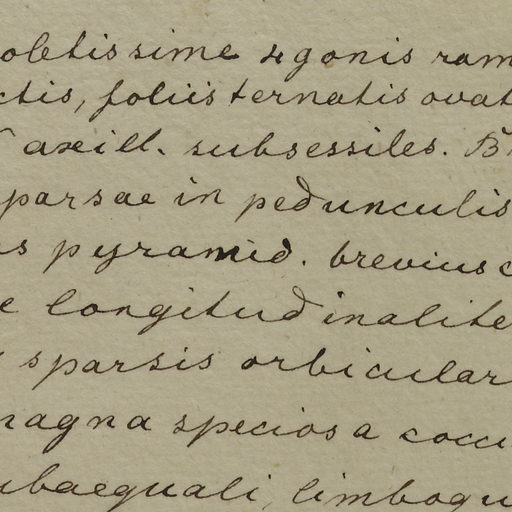 oletissime 4gonis ram
ctis, foliis ternatis ovat
axill. subsessiles. B
parsae in pedunculis
s pyramid. brevius c
e longitudinalite
sparsis orbicular
magna speciosa cocci
ubaequali, limboqu